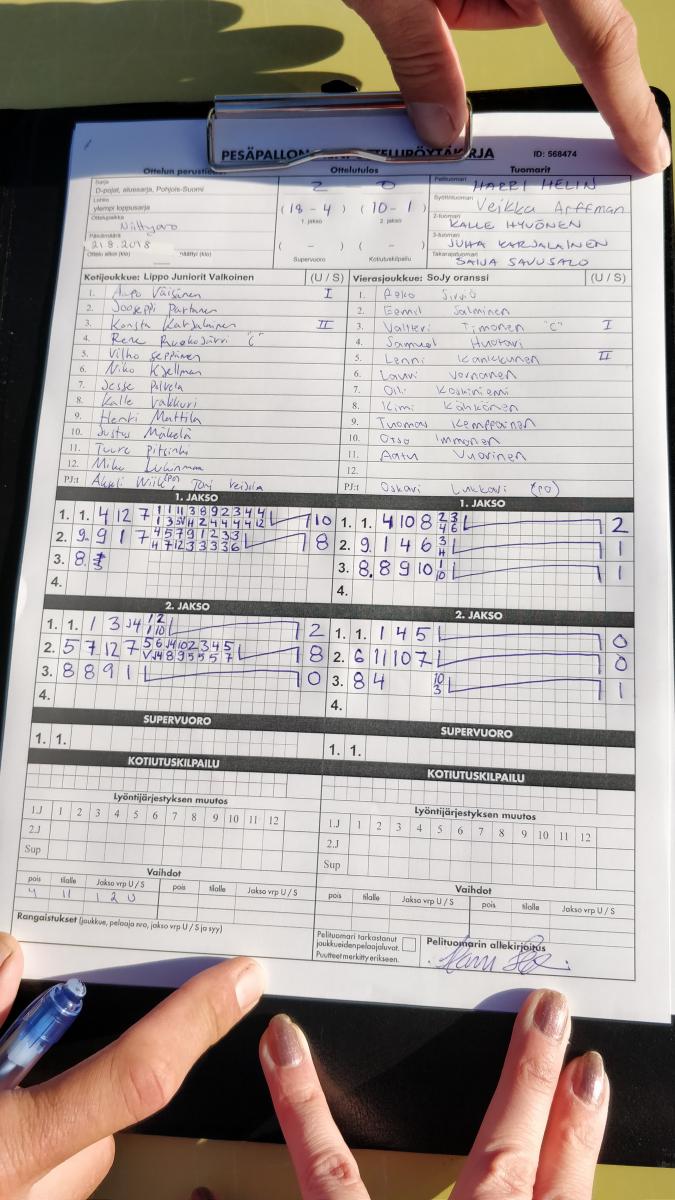 PESÄPALLON
ID: 568474
Ottelutulos
Tuomarit
Sarja
D-pojat, aluesarja, Pohjois-Suomi
Lohko
ylempi loppusarja
Ottelupaikka
Niittyaro
Päivämäärä
21.8.2018
2 0
(18 - 4) (10 - 1)
1. jakso 2. jakso
( - ) ( - )
Supervuoro Kotiutuskilpailu
Pelituomari HARRI HELIN
Syöttötuomari Veikka Arffman
2-tuomari KALLE HYVÖNEN
3-tuomari JUHA KARJALAINEN
Takarajatuomari SAIJA SAVUSALO
Kotijoukkue: Lippo Juniorit Valkoinen (U / S)
1. Aapo Väisänen I
2. Jooseppi Partanen
3. Konsta Karjalainen II
4. Rene Ruokojärvi "C"
5. Vilho Seppänen
6. Niko Kjellman
7. Jesse Palvela
8. Kalle Vakkuri
9. Henri Mattila
10. Justus Mäkelä
11. Tuure
12. Miko
PJ:t
Vierasjoukkue: SoJy oranssi (U / S)
1.
2. Eemil Salminen
3. Valtteri Timonen "C" I
4. Samuel Huotari
5. Lenni Kankkunen II
6. Lauri Vornanen
7. Olli Koskiniemi
8. Kimi Kähkönen
9. Tuomas Kemppainen
10. Otso Immonen
11. Aatu Vuorinen
12.
PJ:t Oskari Lukkari (PJ)
1. JAKSO
1. 1. 4 12 7 10
2. 9. 9 1 7 8
3. 8.
4.
1. JAKSO
1. 1. 4 10 8 2
2. 9. 1 4 6 1
3. 8. 8 9 10 1
4.
2. JAKSO
1. 1. 1 3 2
2. 5 7 12 7 8
3. 8 8 9 1 0
4.
2. JAKSO
1. 1. 1 4 5 0
2. 6 11 10 7 0
3. 8 4 1
4.
SUPERVUORO
1. 1.
SUPERVUORO
1. 1.
KOTIUTUSKILPAILU
KOTIUTUSKILPAILU
Lyöntijärjestyksen muutos
1.J 1 2 3 4 5 6 7 8 9 10 11 12
2.J
Sup
Lyöntijärjestyksen muutos
1.J 1 2 3 4 5 6 7 8 9 10 11 12
2.J
Sup
Vaihdot
pois tilalle Jakso vrp U / S pois tilalle Jakso vrp U / S
4 11 1 2 U
Vaihdot
pois tilalle Jakso vrp U / S pois tilalle Jakso vrp U / S
Rangaistukset (joukkue, pelaaja nro, jakso vrp U / S ja syy)
Pelituomari tarkastanut
joukkueiden pelaajaluvat.
Puutteet merkitty erikseen.
Pelituomarin allekirjoitus